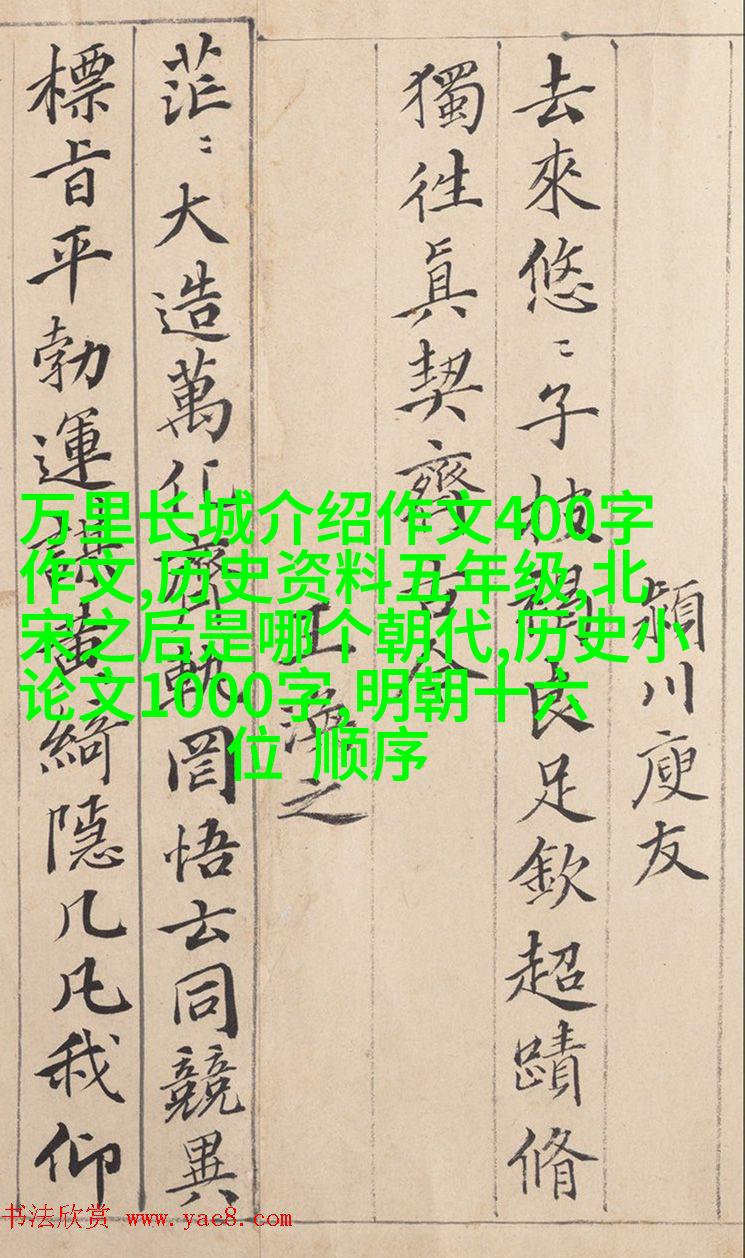 頴川庾友
去來悠〻子披褐良足欽超蹟脩
獨徃眞契齊古今
王渙之
茫〻大造萬化齊軌罔悟玄同競異
標旨平勃運謀黃綺隱几凡我仰
万里长城介绍作文400字
作文,历史资料五年级,北
宋之后是哪个朝代,历史小
论文1000字,明朝十六
位 顺序
书法欣赏 www.yac8.com